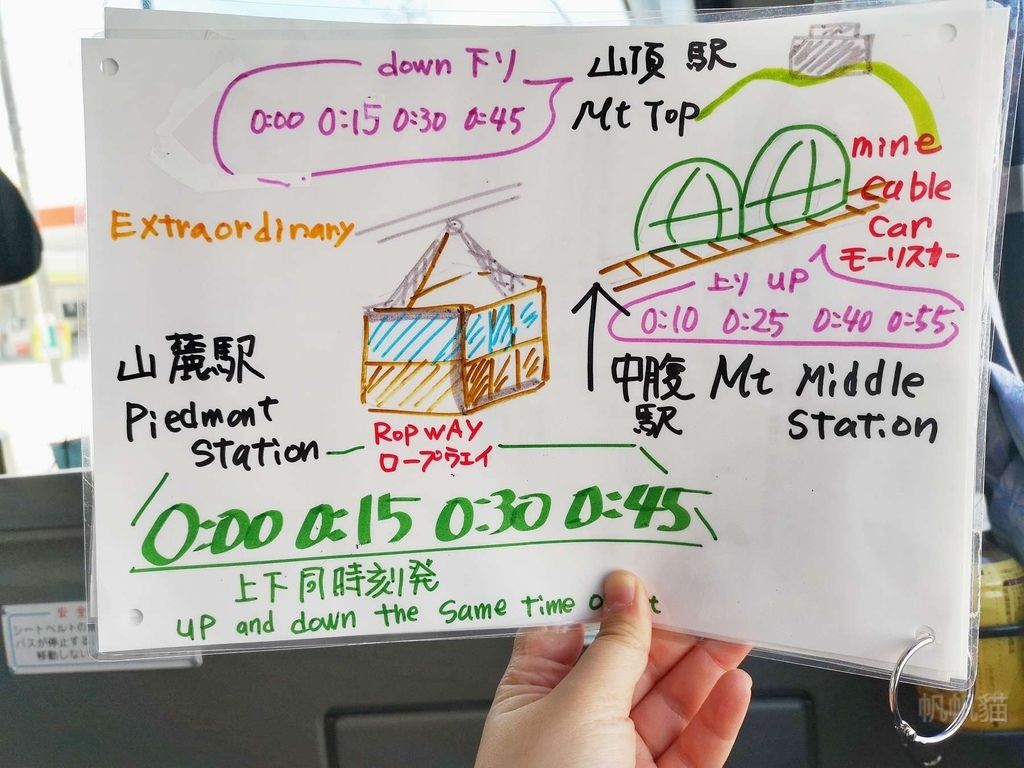 down 下り
0:00 0:15 0:30 0:45
山頂 駅
Mt Top
mine
cable
car
モーリスカー
Extraordinary
上り UP
0:10 0:25 0:40 0:55
山麓駅
Piedmont
Station
中腹
駅
Mt Middle
Station
RopWAY
ロープウェイ
0:00 0:15 0:30 0:45
上下同時刻発
UP and down the same time
安全
シートベルトの
バスが停止する
移動しない
帆帆貓